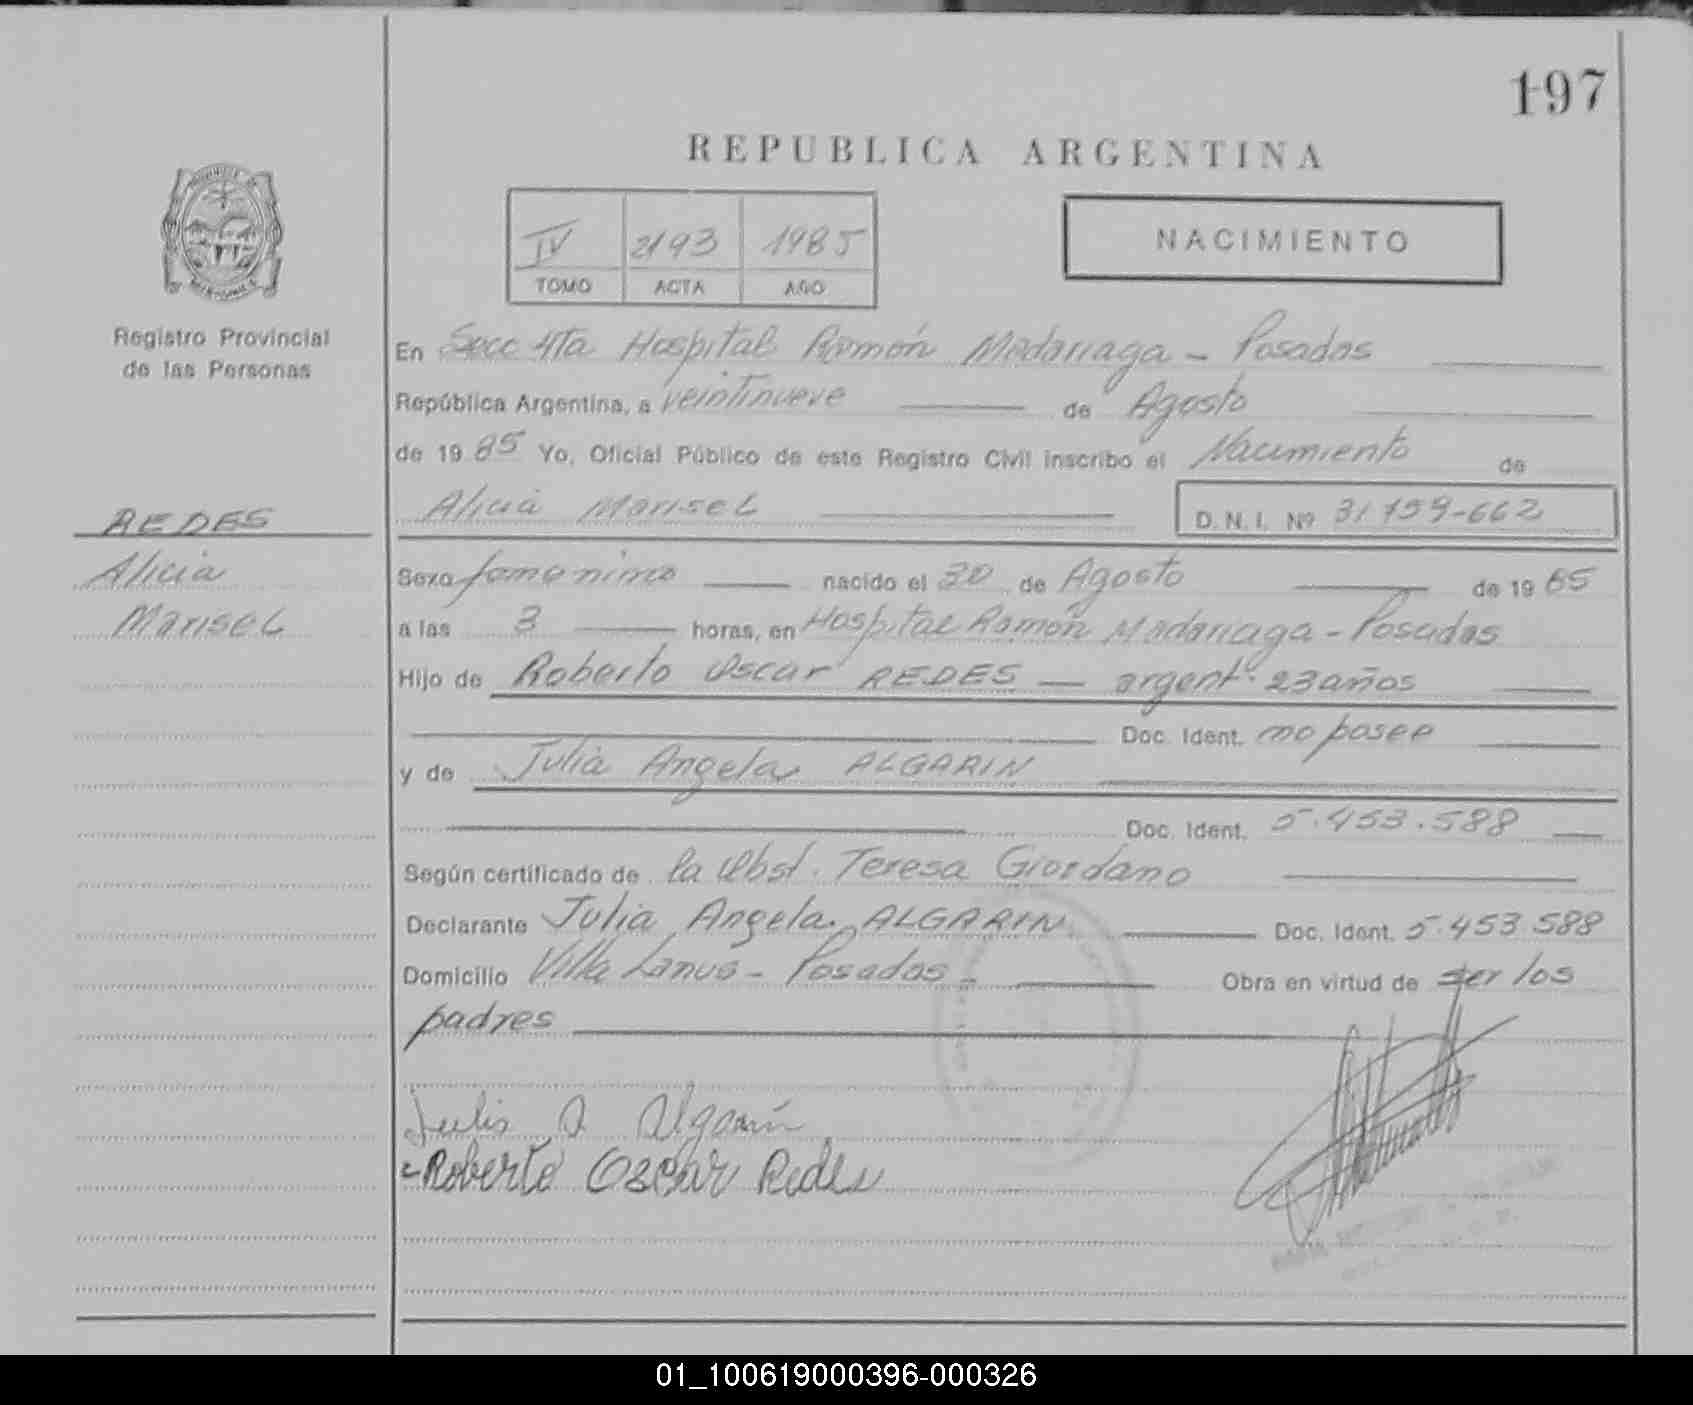 197
REPUBLICA ARGENTINA
IV 2193 1985
TOMO ACTA AÑO
NACIMIENTO
Registro Provincial
de las Personas
REDES
Alicia
Marisel
En Secc 4ta Hospital Ramón Madariaga - Posadas
República Argentina, a veintinueve de Agosto
de 1985 Yo, Oficial Público de este Registro Civil inscribo el Nacimiento de
Alicia Marisel D.N.I. Nº 31.159-662
Sexo femenino nacido el 20 de Agosto de 1985
a las 3 horas, en Hospital Ramón Madariaga - Posadas
Hijo de Roberto Oscar REDES — argent. 23 años
Doc. Ident. no posee
y de Julia Angela ALGARIN
Doc. Ident. 5.453.588
Según certificado de la Obst. Teresa Giordano
Declarante Julia Angela ALGARIN Doc. Ident. 5.453.588
Domicilio Villa Lanus - Posadas - Obra en virtud de ser los
padres
Julia A. Algarín
Roberto Oscar Redes
01_100619000396-000326